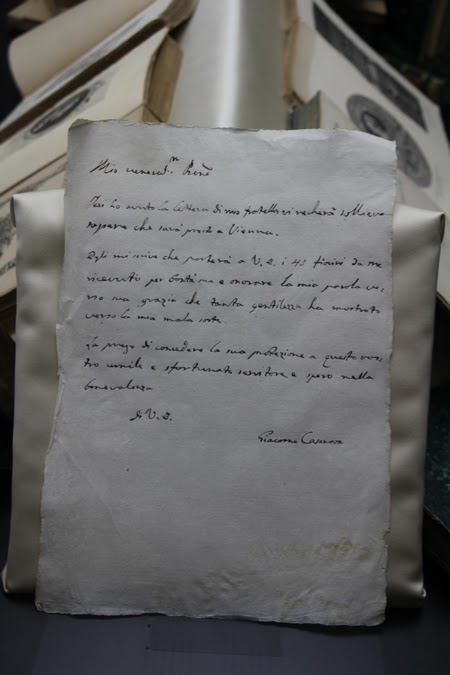 Mio venerat.m Prñe
Jai ho avuto la lettera di mio fratello vi recherà sollievo
sapere che sarà presto a Vienna.
Egli mi invia che porterà a V. E. i 43 fiorini da me
ricevuti per bontà sua e onorare la mia parola ver
so sua grazia che tanta gentilezza ha mostrato
verso la mia mala sorte.
La prego di concedere la sua protezione a questo vos
tro umile e sfortunato servitore e spero nella
benevolenza
di V. E.
Giacomo Casanova